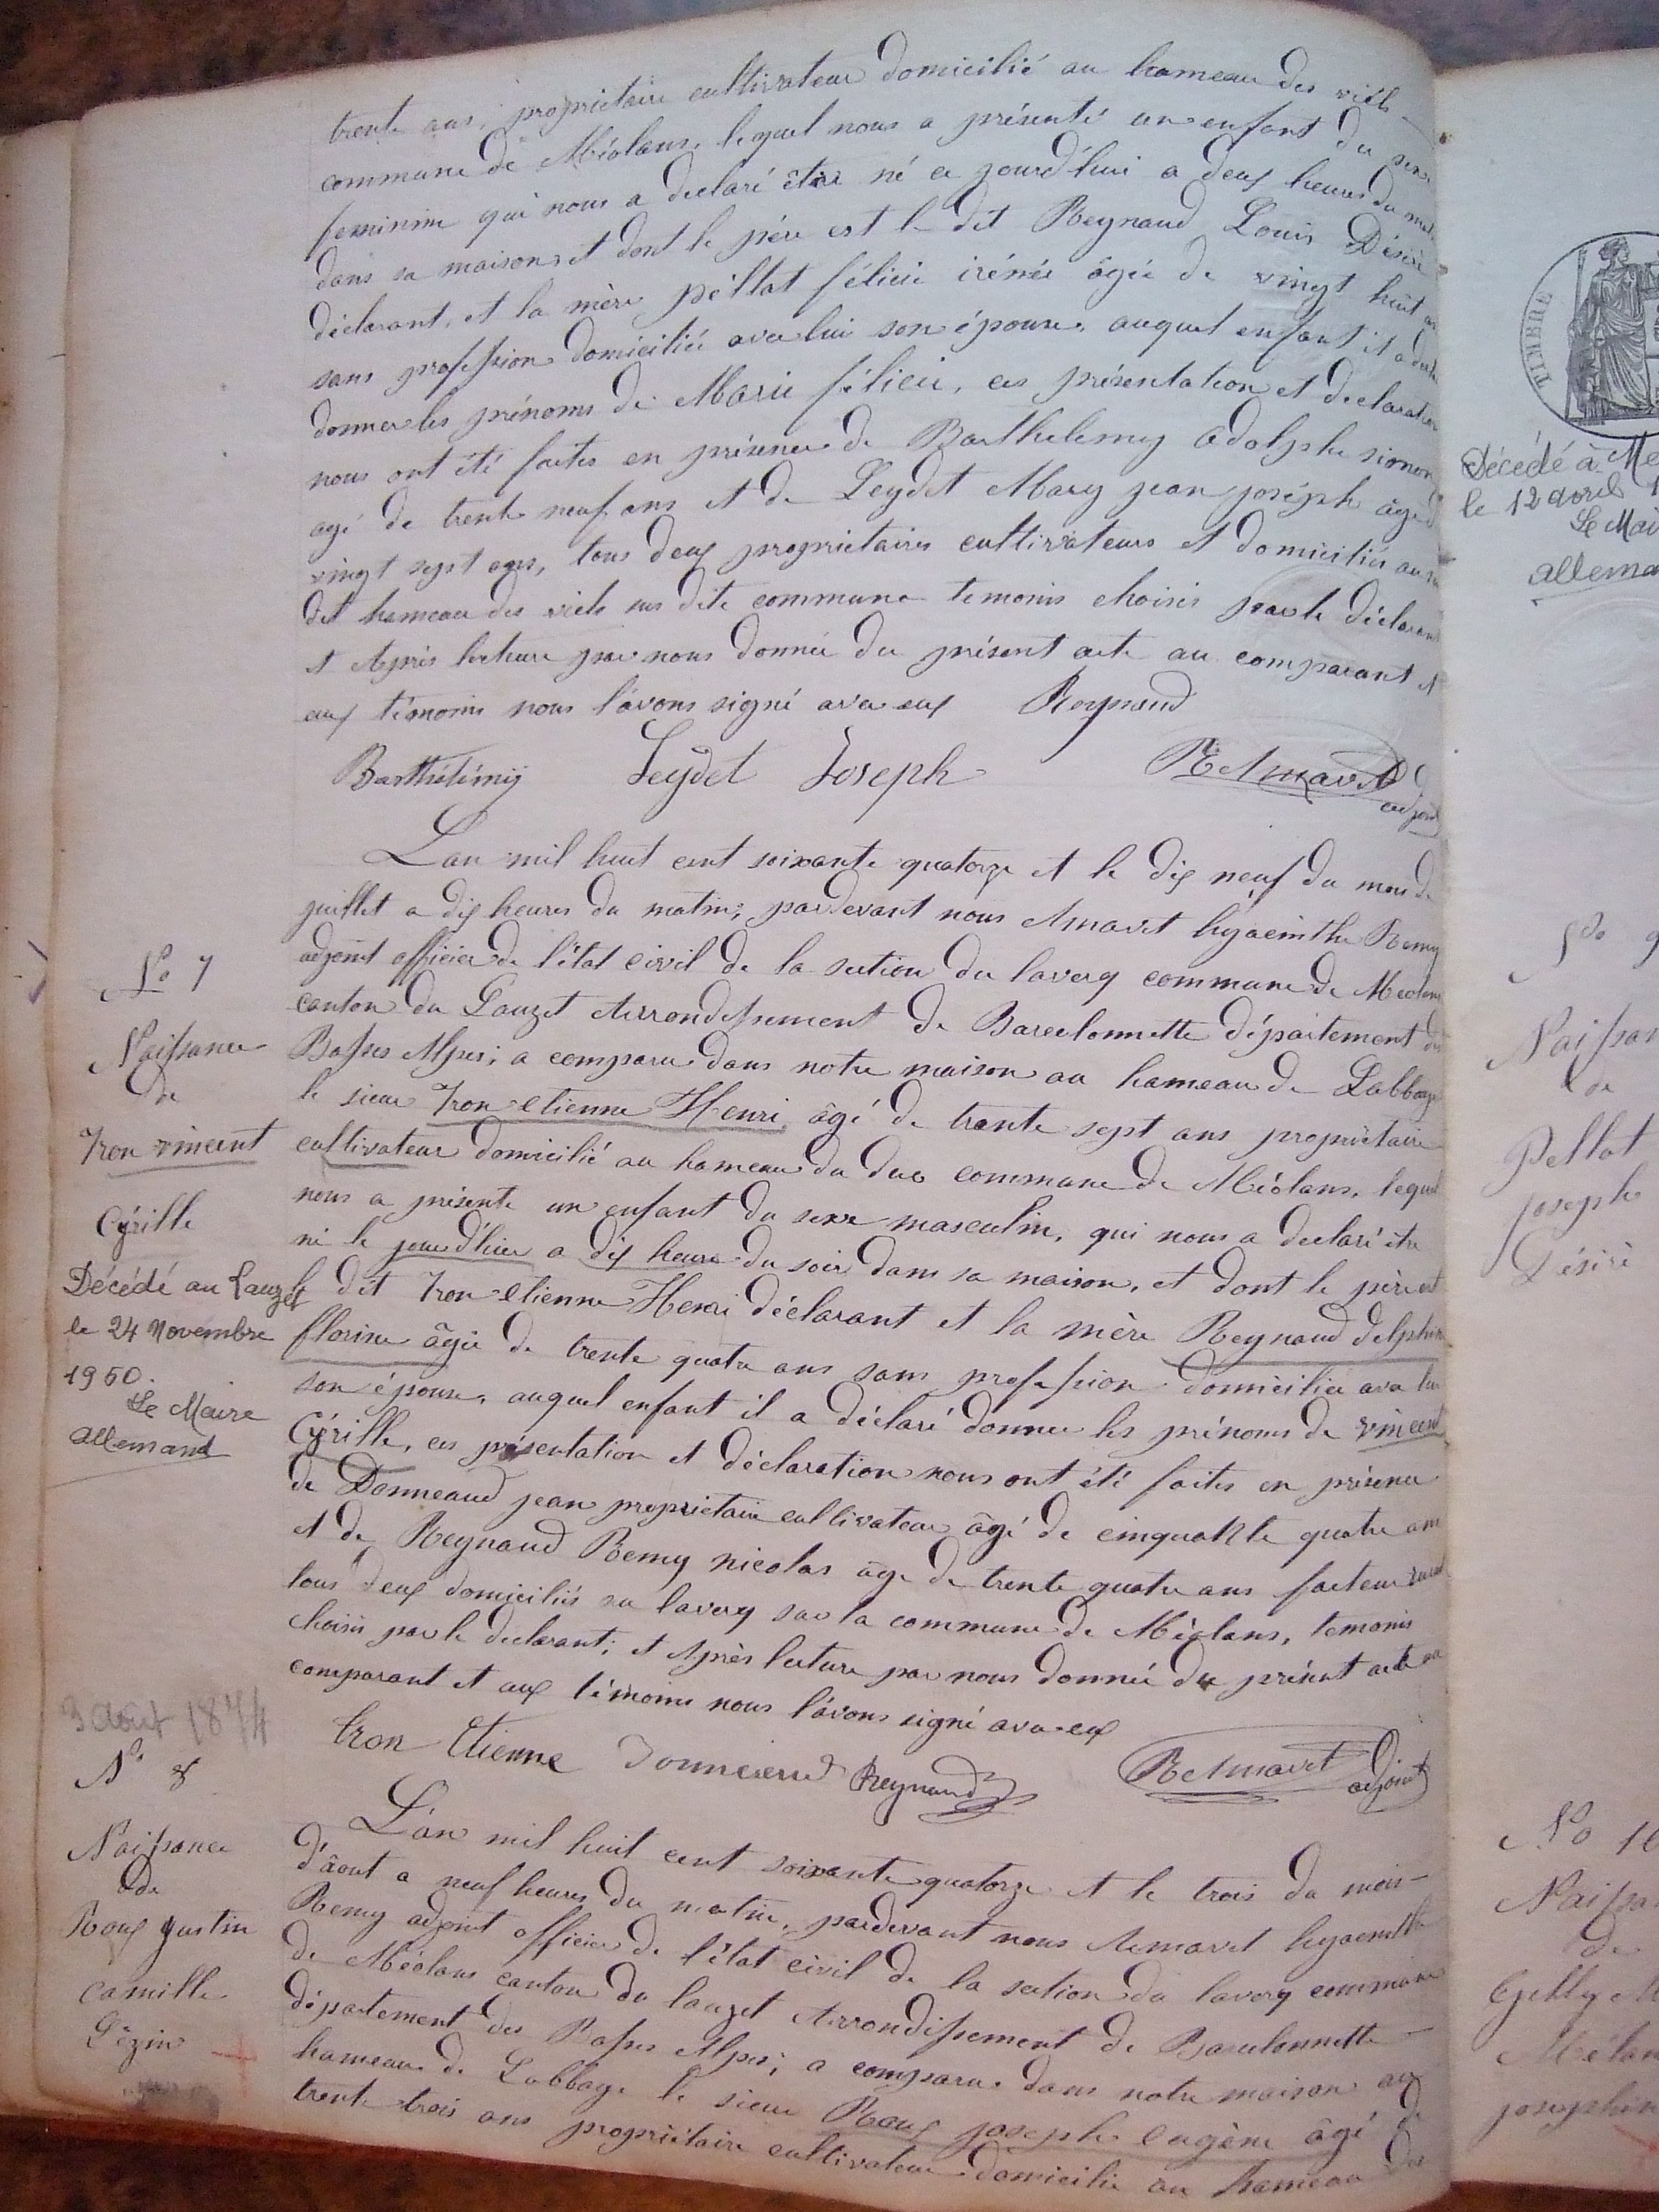 trente ans, propriétaire cultivateur domicilié au hameau des viels
commune de Méolans, lequel nous a présenté un enfant du sexe
feminim qui nous a declaré être né ce jourd'hui a deux heures du matin
dans sa maison et dont le père est le dit Reynaud Louis Désiré
déclarant, et la mère pellat félicie irénée âgée de vingt huit ans
sans profession domiciliée avec lui son épouse, auquel enfant il a declaré
donner les prénoms de Marie félicie, ces présentation et declaration
nous ont été faites en présence de Barthelemy adolphe simon
agé de trente neuf ans et de Leydet Mary jean joséph âgé de
vingt sept ans, tous deux propriétaires cultivateurs et domiciliés au sus
dit hameau des viels sus dite commune temoins choisis par le déclarant
et Après lecture par nous donnée du présent acte au comparant et
aux témoins nous l'avons signé avec eux Reynaud
Barthélémy Leydet Joseph R Amavet adjoint
L'an mil huit cent soixante quatorze et le dix neuf du mois de
juillet a dix heures du matin, pardevant nous Amavet hyacinthe Remy
adjoint officier de l'état civil de la section du laverq commune de Meolans
canton du Lauzet Arrondissement de Barcelonnette département des
Basses Alpes; a comparu dans notre maison au hameau de Labbaye
le sieur Tron etienne Henri, âgé de trente sept ans propriètaire
cultivateur domicilié au hameau du duc commune de Méolans, lequel
nous a présenté un enfant du sexe masculin, qui nous a declaré être
né le jour d'hier a dix heure du soir dans sa maison, et dont le père est
le dit Tron etienne Henri déclarant et la mère Reynaud delphine
florine âgée de trente quatre ans sans profession domiciliée avec lui
son épouse, auquel enfant il a déclaré donner les prénoms de vincent
Cyrille, ces présentation et déclaration nous ont été faites en présence
de Donneaud jean propriétaire cultivateur âgé de cinquante quatre ans
et de Reynaud Remy nicolas âge de trente quatre ans facteur rural
tous deux domiciliés au laverq sur la commune de Méolans, temoins
choisis par le declarant; et Après lecture par nous donnée du présent acte au
comparant et aux témoins nous l'avons signé avec eux
tron Etienne Donneaud Reynaud R Amavet adjoint
L'an mil huit cent soixante quatorze et le trois du mois
d'âout a neuf heures du matin, pardevant nous Amavet hyacinthe
Remy adjoint officier de l'état civil de la section du laverq commune
de Méolans canton du lauzet Arrondissement de Barcelonnette
département des Basses Alpes; a comparu dans notre maison au
hameau de Labbaye le sieur Roux joseph eugène âgé de
trente trois ans propriètaire cultivateur domicilié au hameau des
No 7
Naissance
de
Tron vincent
Cyrille
Décédé au Lauzet
le 24 Novembre
1950.
Le Maire
Allemand
3 août 1874
No 8
Naissance
de
Roux justin
camille
Lézin
TIMBRE
Décédé à Me
le 12 avril 1
Le Mai
allema
No 9
Naissan
de
Pellat
joseph
Désiré
No 10
Naissa
de
Gilly M
Mélan
josephin